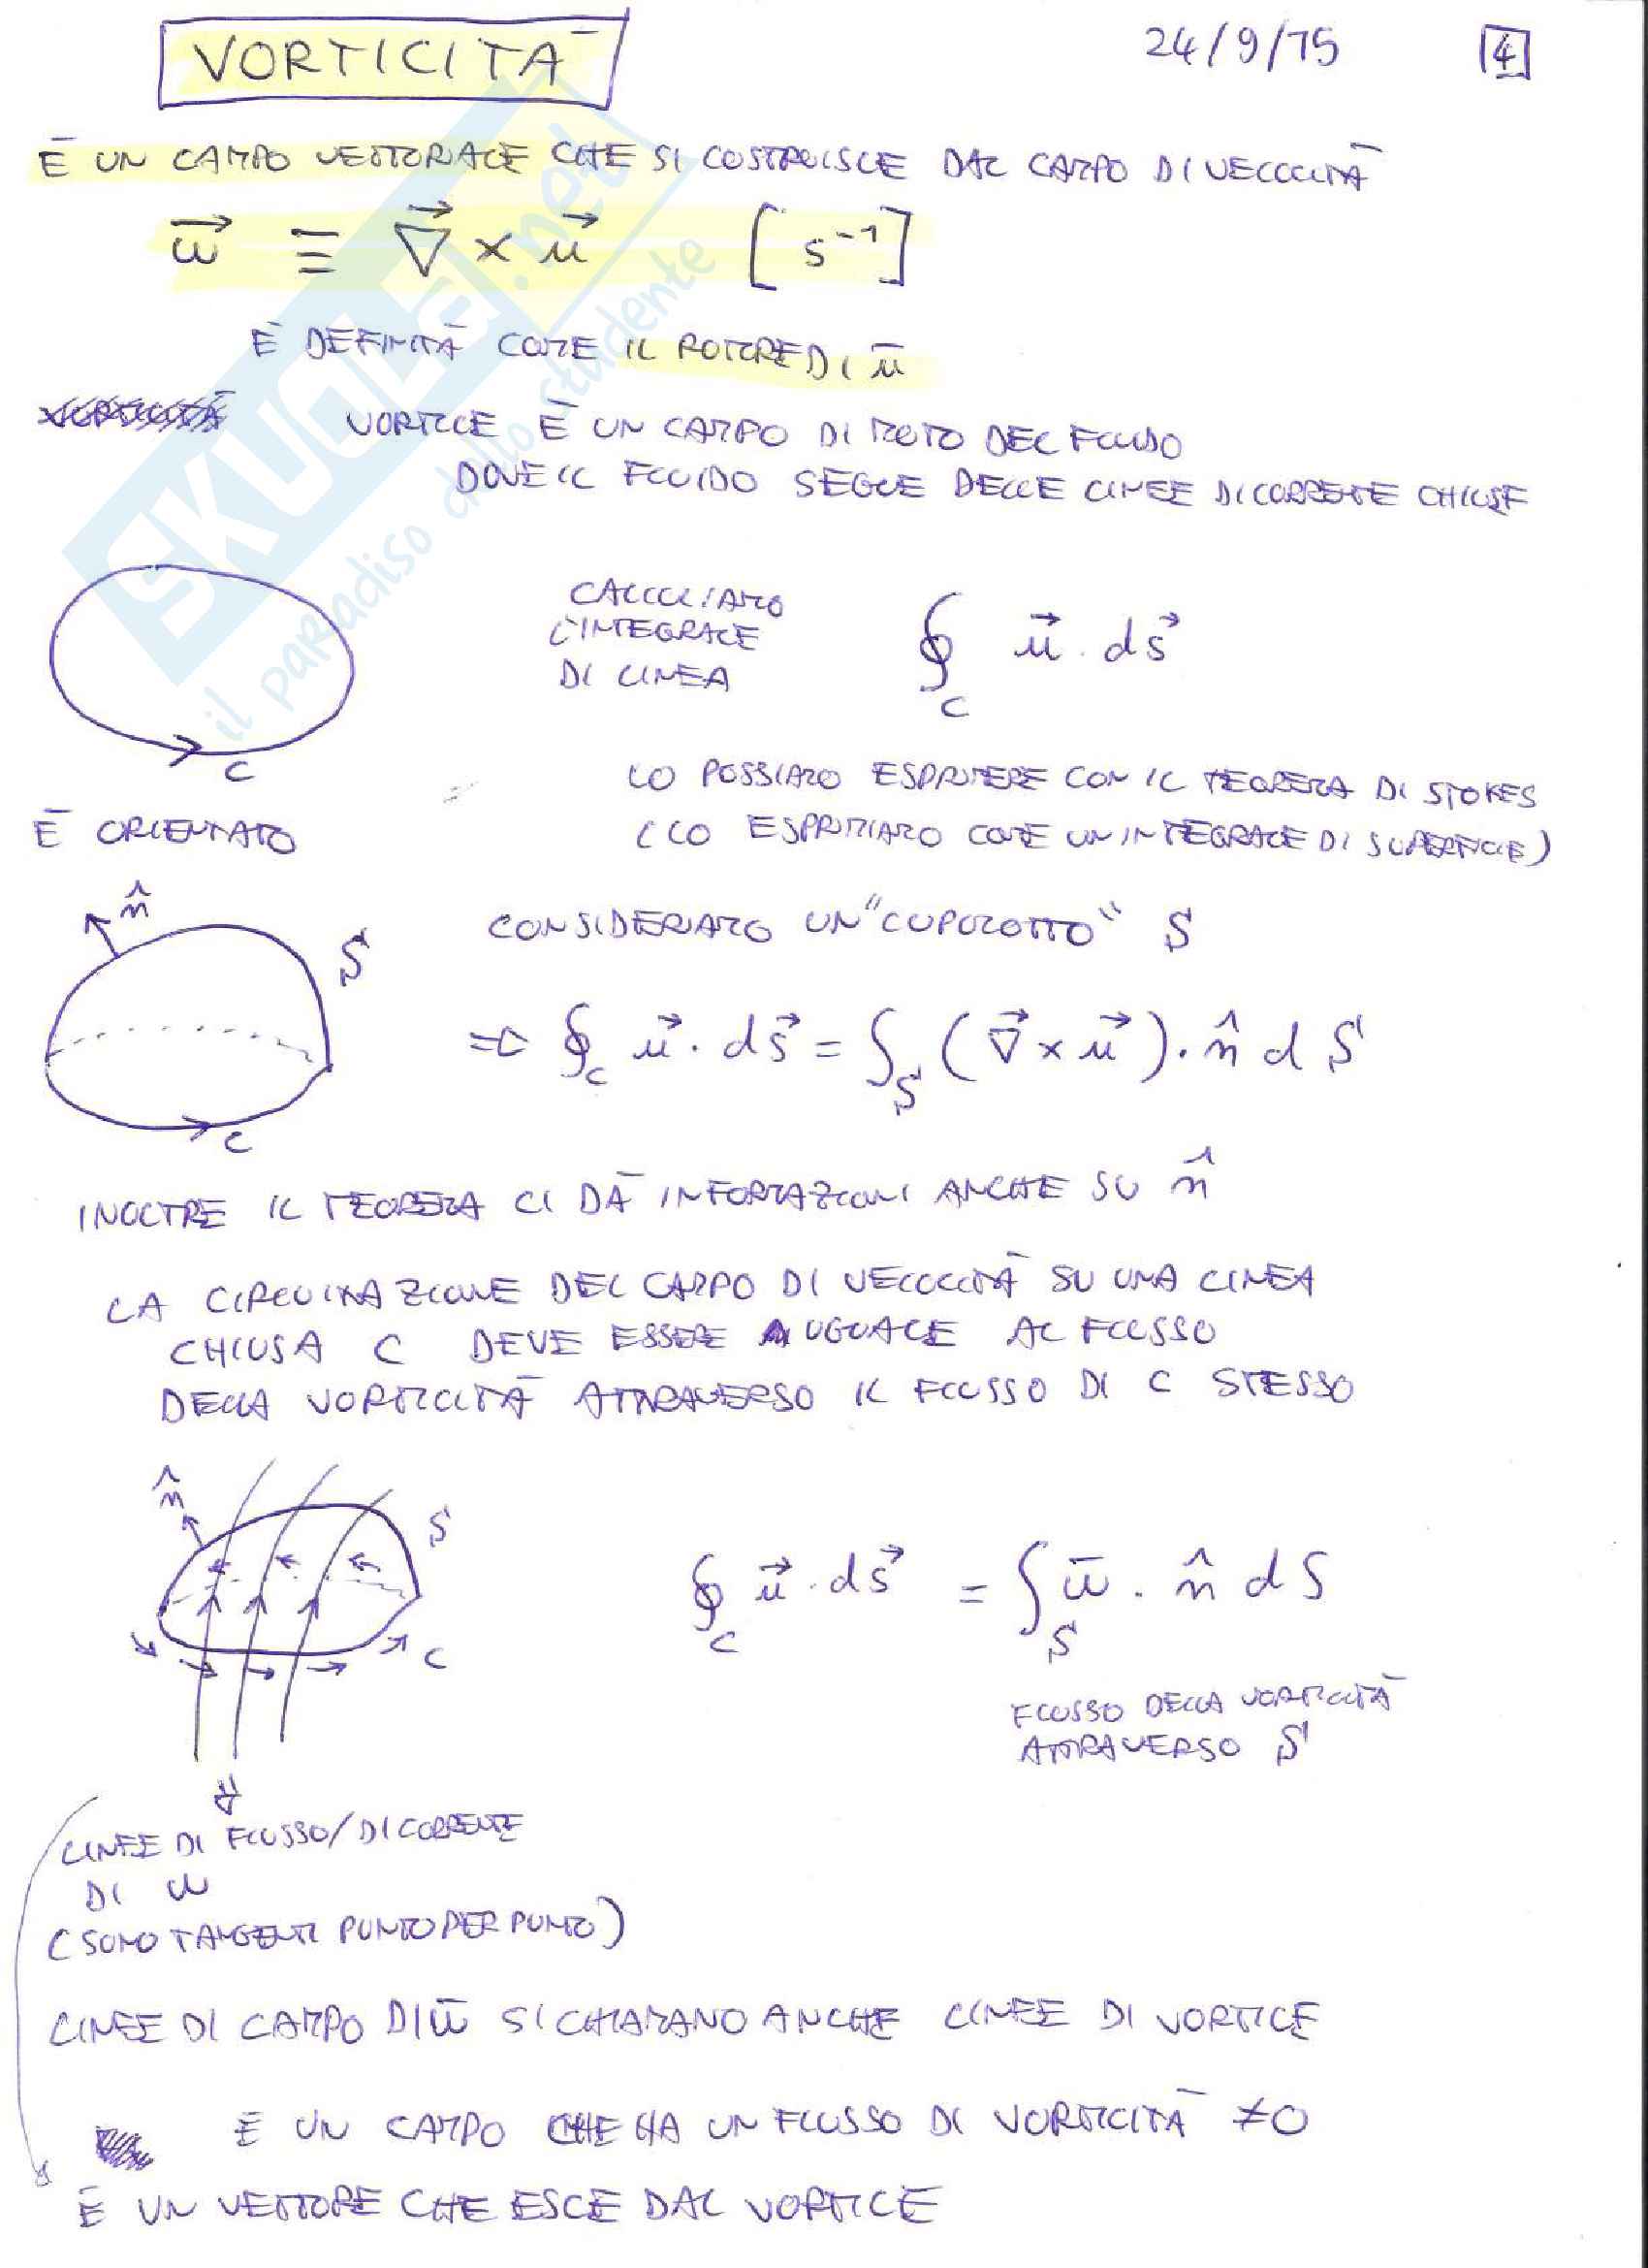 VORTICITÀ
24/9/15
4
È UN CAMPO VETTORIALE CHE SI COSTRUISCE DAL CAMPO DI VELOCITÀ
$\vec{\omega} \equiv \vec{\nabla} \times \vec{u} \quad [s^{-1}]$
È DEFINITA COME IL ROTORE DI $\bar{u}$
VORTICE È UN CAMPO DI MOTO DEL FLUIDO
DOVE IL FLUIDO SEGUE DELLE LINEE DI CORRENTE CHIUSE
CALCOLIAMO
L'INTEGRALE
DI LINEA
$\oint_C \vec{u} \cdot d\vec{s}$
C
LO POSSIAMO ESPRIMERE CON IL TEOREMA DI STOKES
È ORIENTATO
(LO ESPRIMIAMO COME UN INTEGRALE DI SUPERFICIE)
$\hat{n}$
S
CONSIDERIAMO UN "CUPOLOTTO" S
$\Rightarrow \oint_C \vec{u} \cdot d\vec{s} = \int_S (\vec{\nabla} \times \vec{u}) \cdot \hat{n} \, dS$
C
INOLTRE IL TEOREMA CI DÀ INFORMAZIONI ANCHE SU $\hat{n}$
LA CIRCUITAZIONE DEL CAMPO DI VELOCITÀ SU UNA LINEA
CHIUSA C DEVE ESSERE UGUALE AL FLUSSO
DELLA VORTICITÀ ATTRAVERSO IL FLUSSO DI C STESSO
$\hat{n}$
S
C
$\oint_C \vec{u} \cdot d\vec{s} = \int_S \bar{\omega} \cdot \hat{n} \, dS$
FLUSSO DELLA VORTICITÀ
ATTRAVERSO S
LINEE DI FLUSSO/DI CORRENTE
DI ω
(SONO TANGENTI PUNTO PER PUNTO)
LINEE DI CAMPO DI $\bar{\omega}$ SI CHIAMANO ANCHE LINEE DI VORTICE
È UN CAMPO CHE HA UN FLUSSO DI VORTICITÀ ≠0
È UN VETTORE CHE ESCE DAL VORTICE
SKUOLA.net
il paradiso dello studente